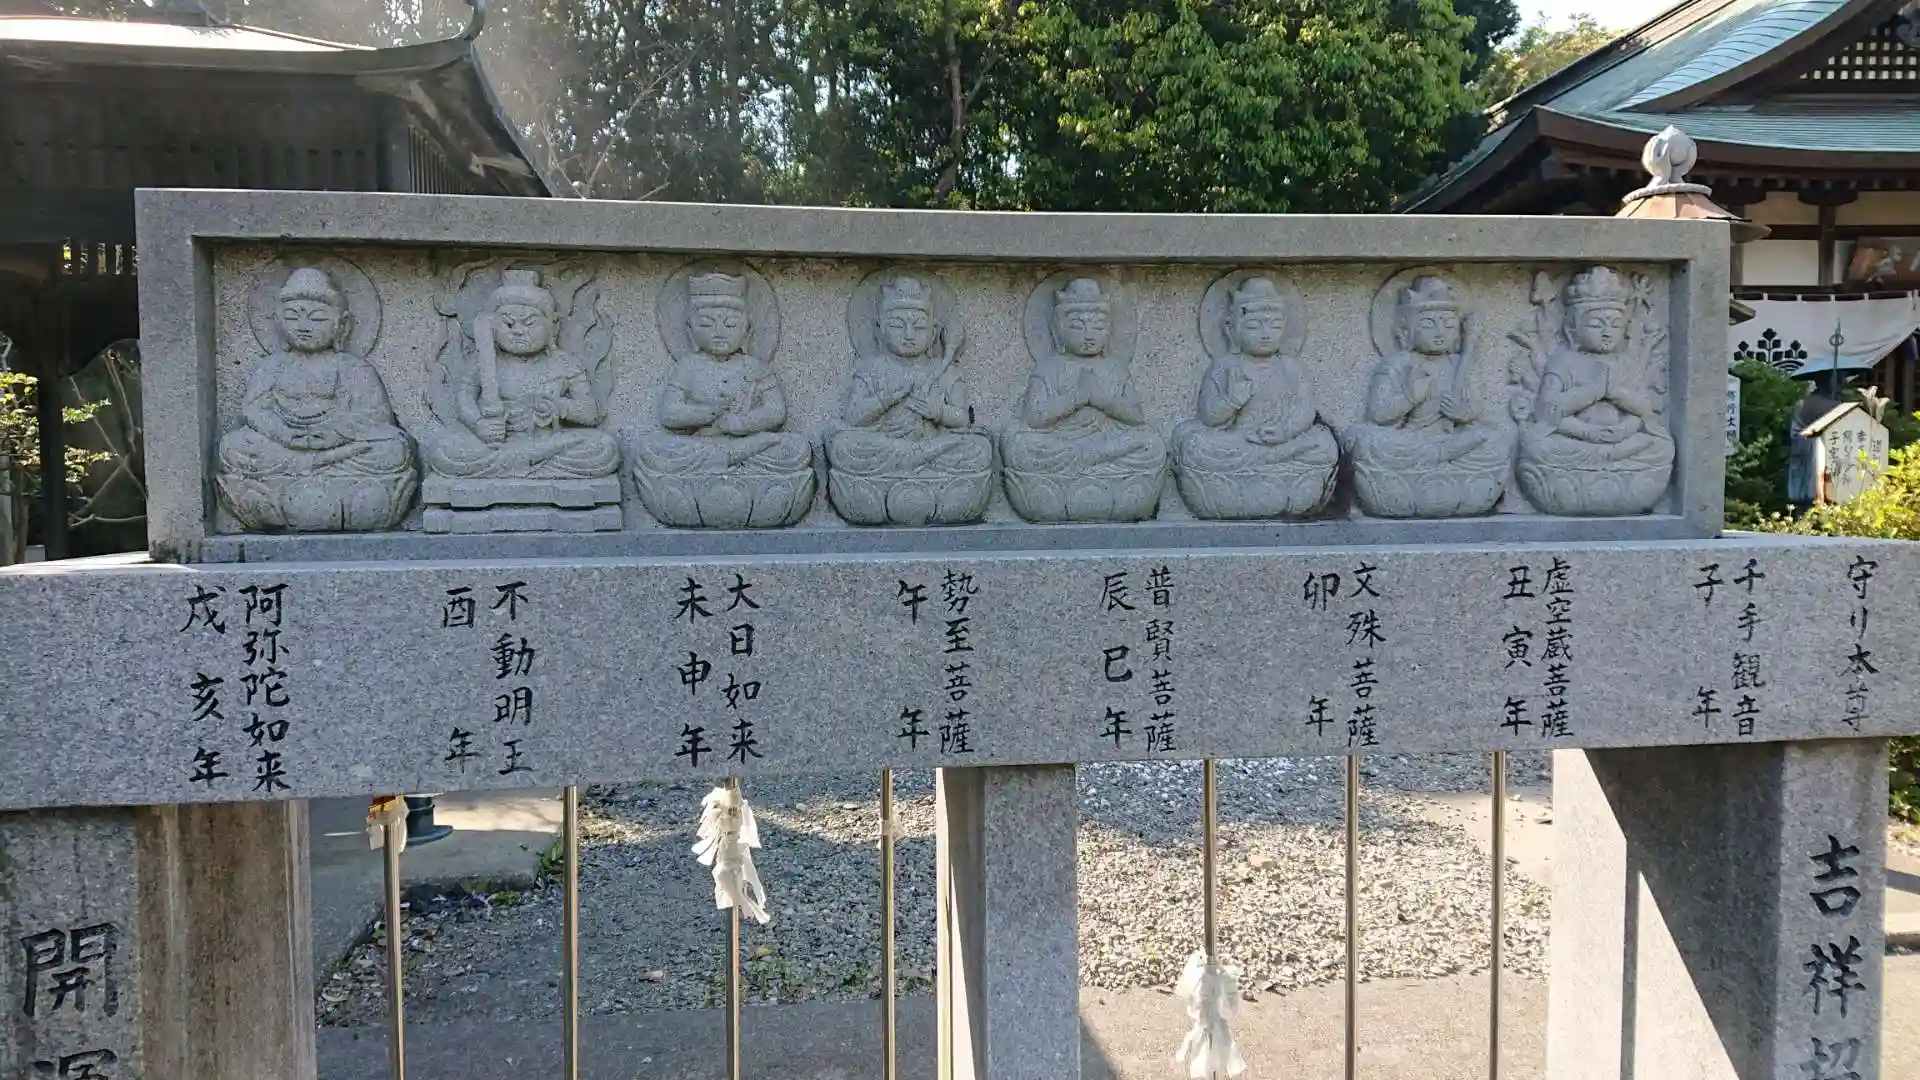 守り本尊
千手観音
子年
虚空蔵菩薩
丑寅年
文殊菩薩
卯年
普賢菩薩
辰巳年
勢至菩薩
午年
大日如来
未申年
不動明王
酉年
阿弥陀如来
戌亥年
吉祥招
開運